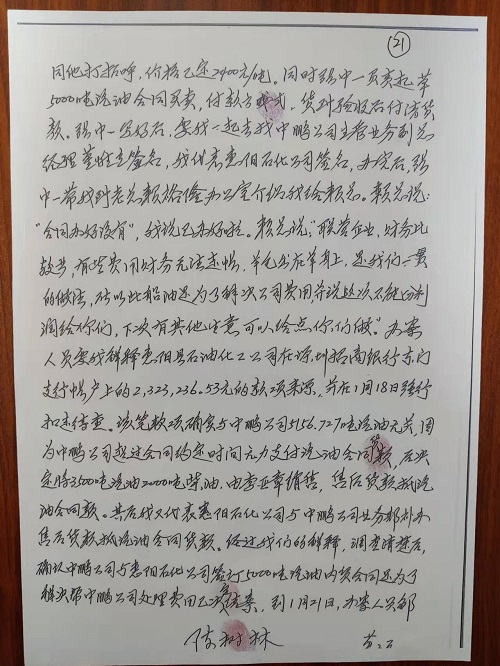 21
同他打招呼，价格已定2400元/吨。同时强中一页卖起草
5000吨汽油合同买卖，付款方式，货到验收后付清货
款。强中一写好后，要我一起去找中鹏公司主管业务副总
经理董 签名，我代表惠阳石化公司签名，办完后，强
中一带我到老总赖 办公室介绍我给赖总。赖总说：
"合同办好没有"，我说已办好啦。赖总说："联营企业，财务比
较 ，有些费用财务无法进帐，羊毛出在羊身上，是我们一贯
的做法，所以此船油是为了解决公司费用并说此次不能分利
润给你们，下次有其他生意可以给点你们做"。办案
人员要我解释惠阳县石油化工公司在深圳招商银行东门
支行帐户上的2,323,236.53元的款项来源，并在1月18日银行
扣去传查。该笔款项确实与中鹏公司5156.727吨汽油无关，因
为中鹏公司超过合同约定时间无力支付汽油合同货款，后决
定将3500吨汽油2000吨柴油，由李亚章销售，售后货款抵汽
油合同款。其后我又代表惠阳石化公司与中鹏公司业务部补办
售后货款抵汽油合同货款。经过我们的解释，调查清楚后，
确认中鹏公司与惠阳石化公司签订5000吨汽油内贸合同是为了
解决帮中鹏公司处理费用已次结案，到1月21日，办案人员都
陈树林